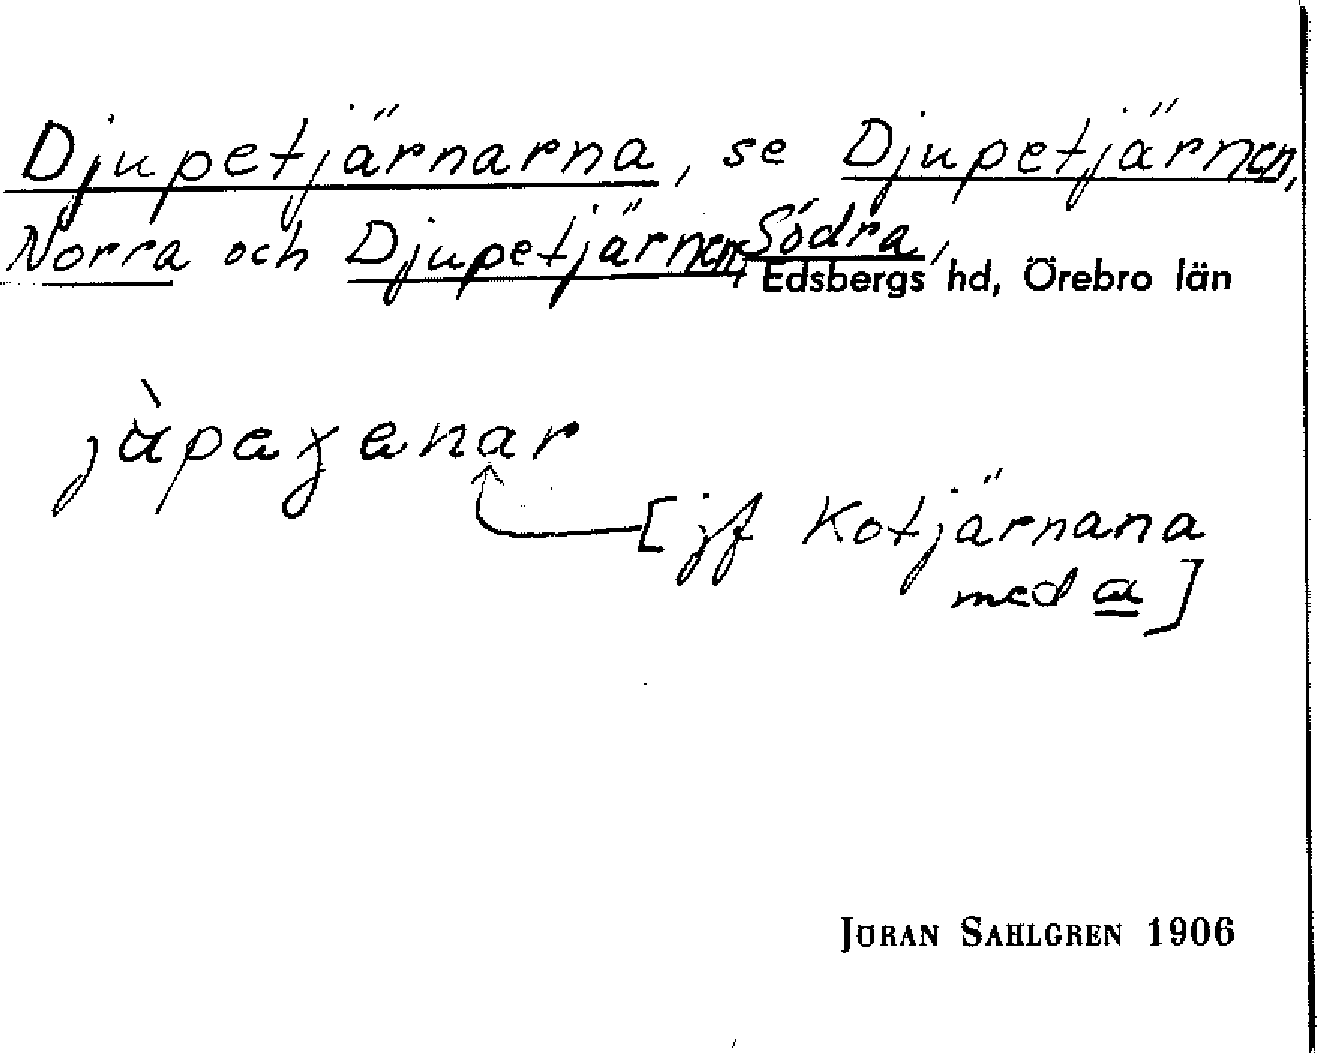 Djupetjärnarna, se Djupetjärnen,
Norra och Djupetjärnen, Södra,
Edsbergs hd, Örebro län
[jf Kotjärnana
med a]
JÖRAN SAHLGREN 1906